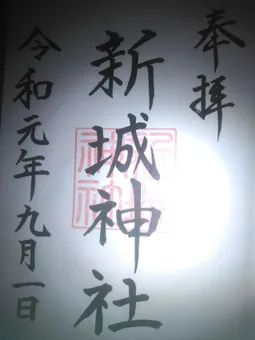 奉拝
新城神社
令和元年九月一日